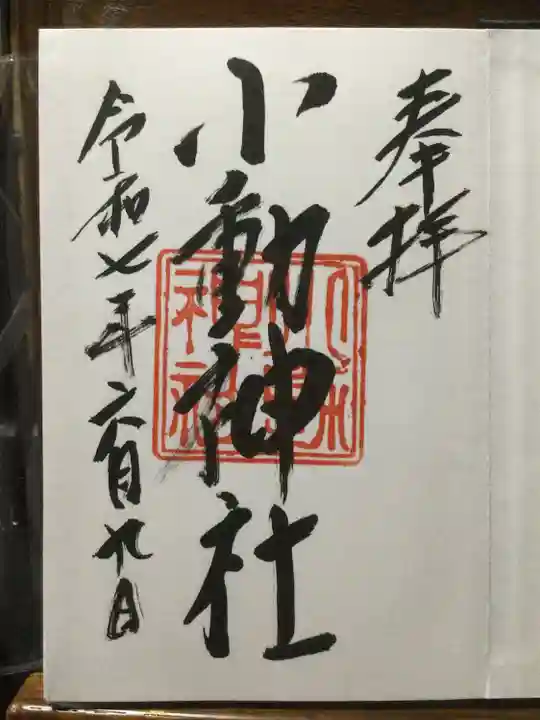 奉拝
小動神社
令和七年六月九日